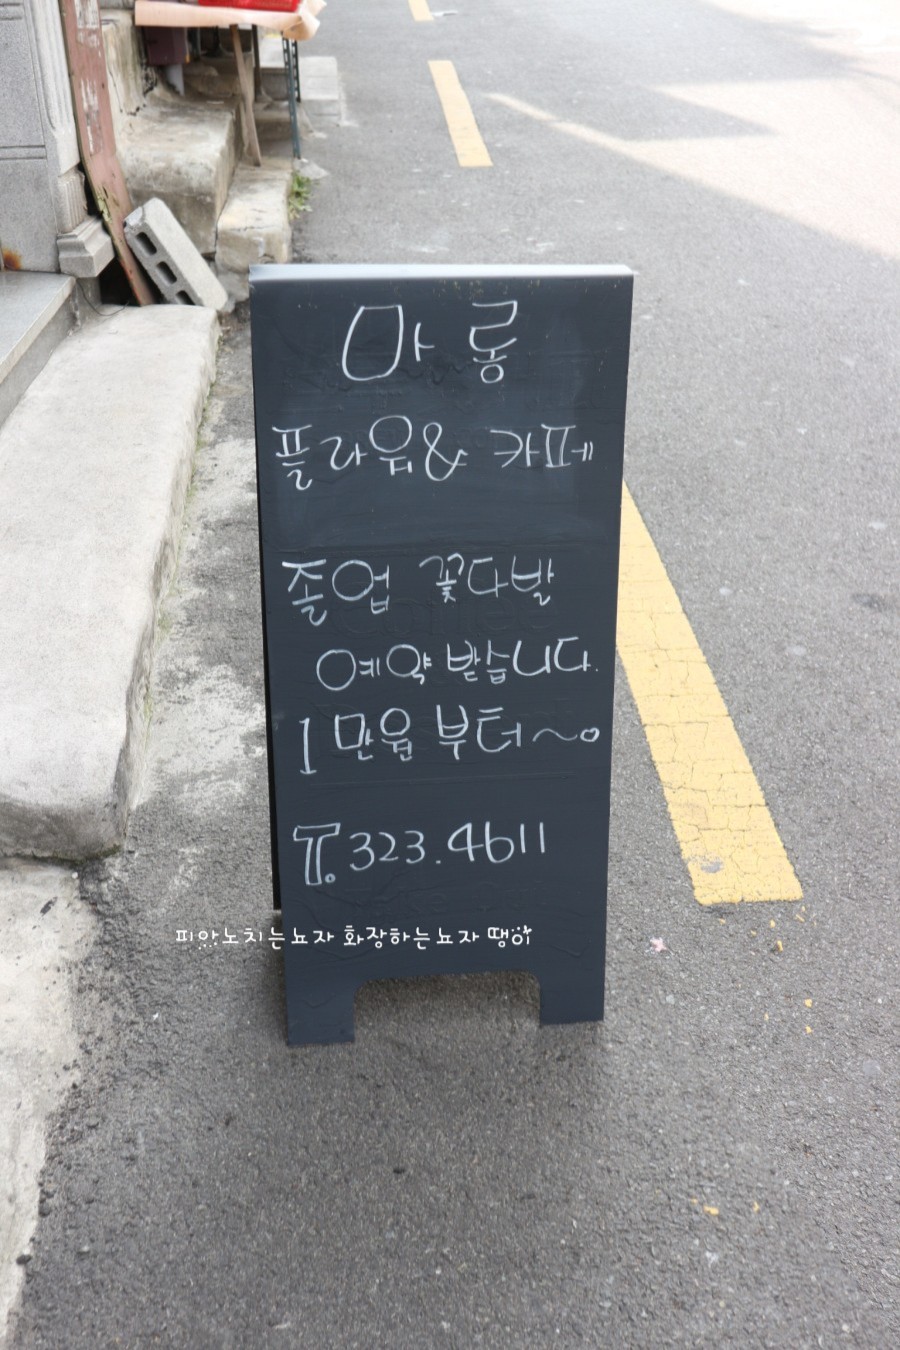 마롱
플라워& 카페
졸업 꽃다발
예약 받습니다.
1만원 부터~
T. 323.4611
피아노치는뇨자 화장하는뇨자 땡이